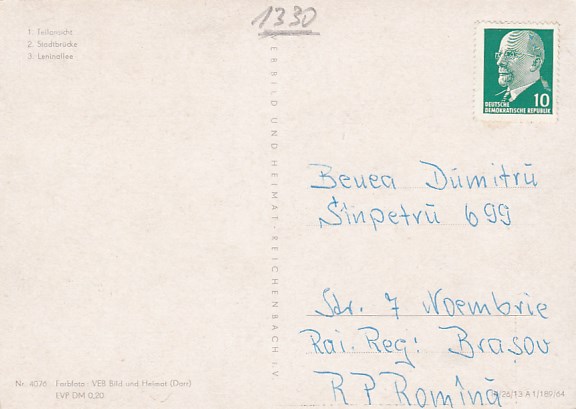 1330
1. Teilansicht
2. Stadtbrücke
3. Leninallee
VEB BILD UND HEIMAT · REICHENBACH i. V.
10
DEUTSCHE
DEMOKRATISCHE REPUBLIK
Benea Dumitrŭ
Sînpetrŭ 699
Str. 7 Noembrie
Rai. Reg: Brașov
R P Romînă
Nr. 4076 Farbfoto: VEB Bild und Heimat (Darr)
EVP DM 0,20
IV/26/13 A 1/189/64